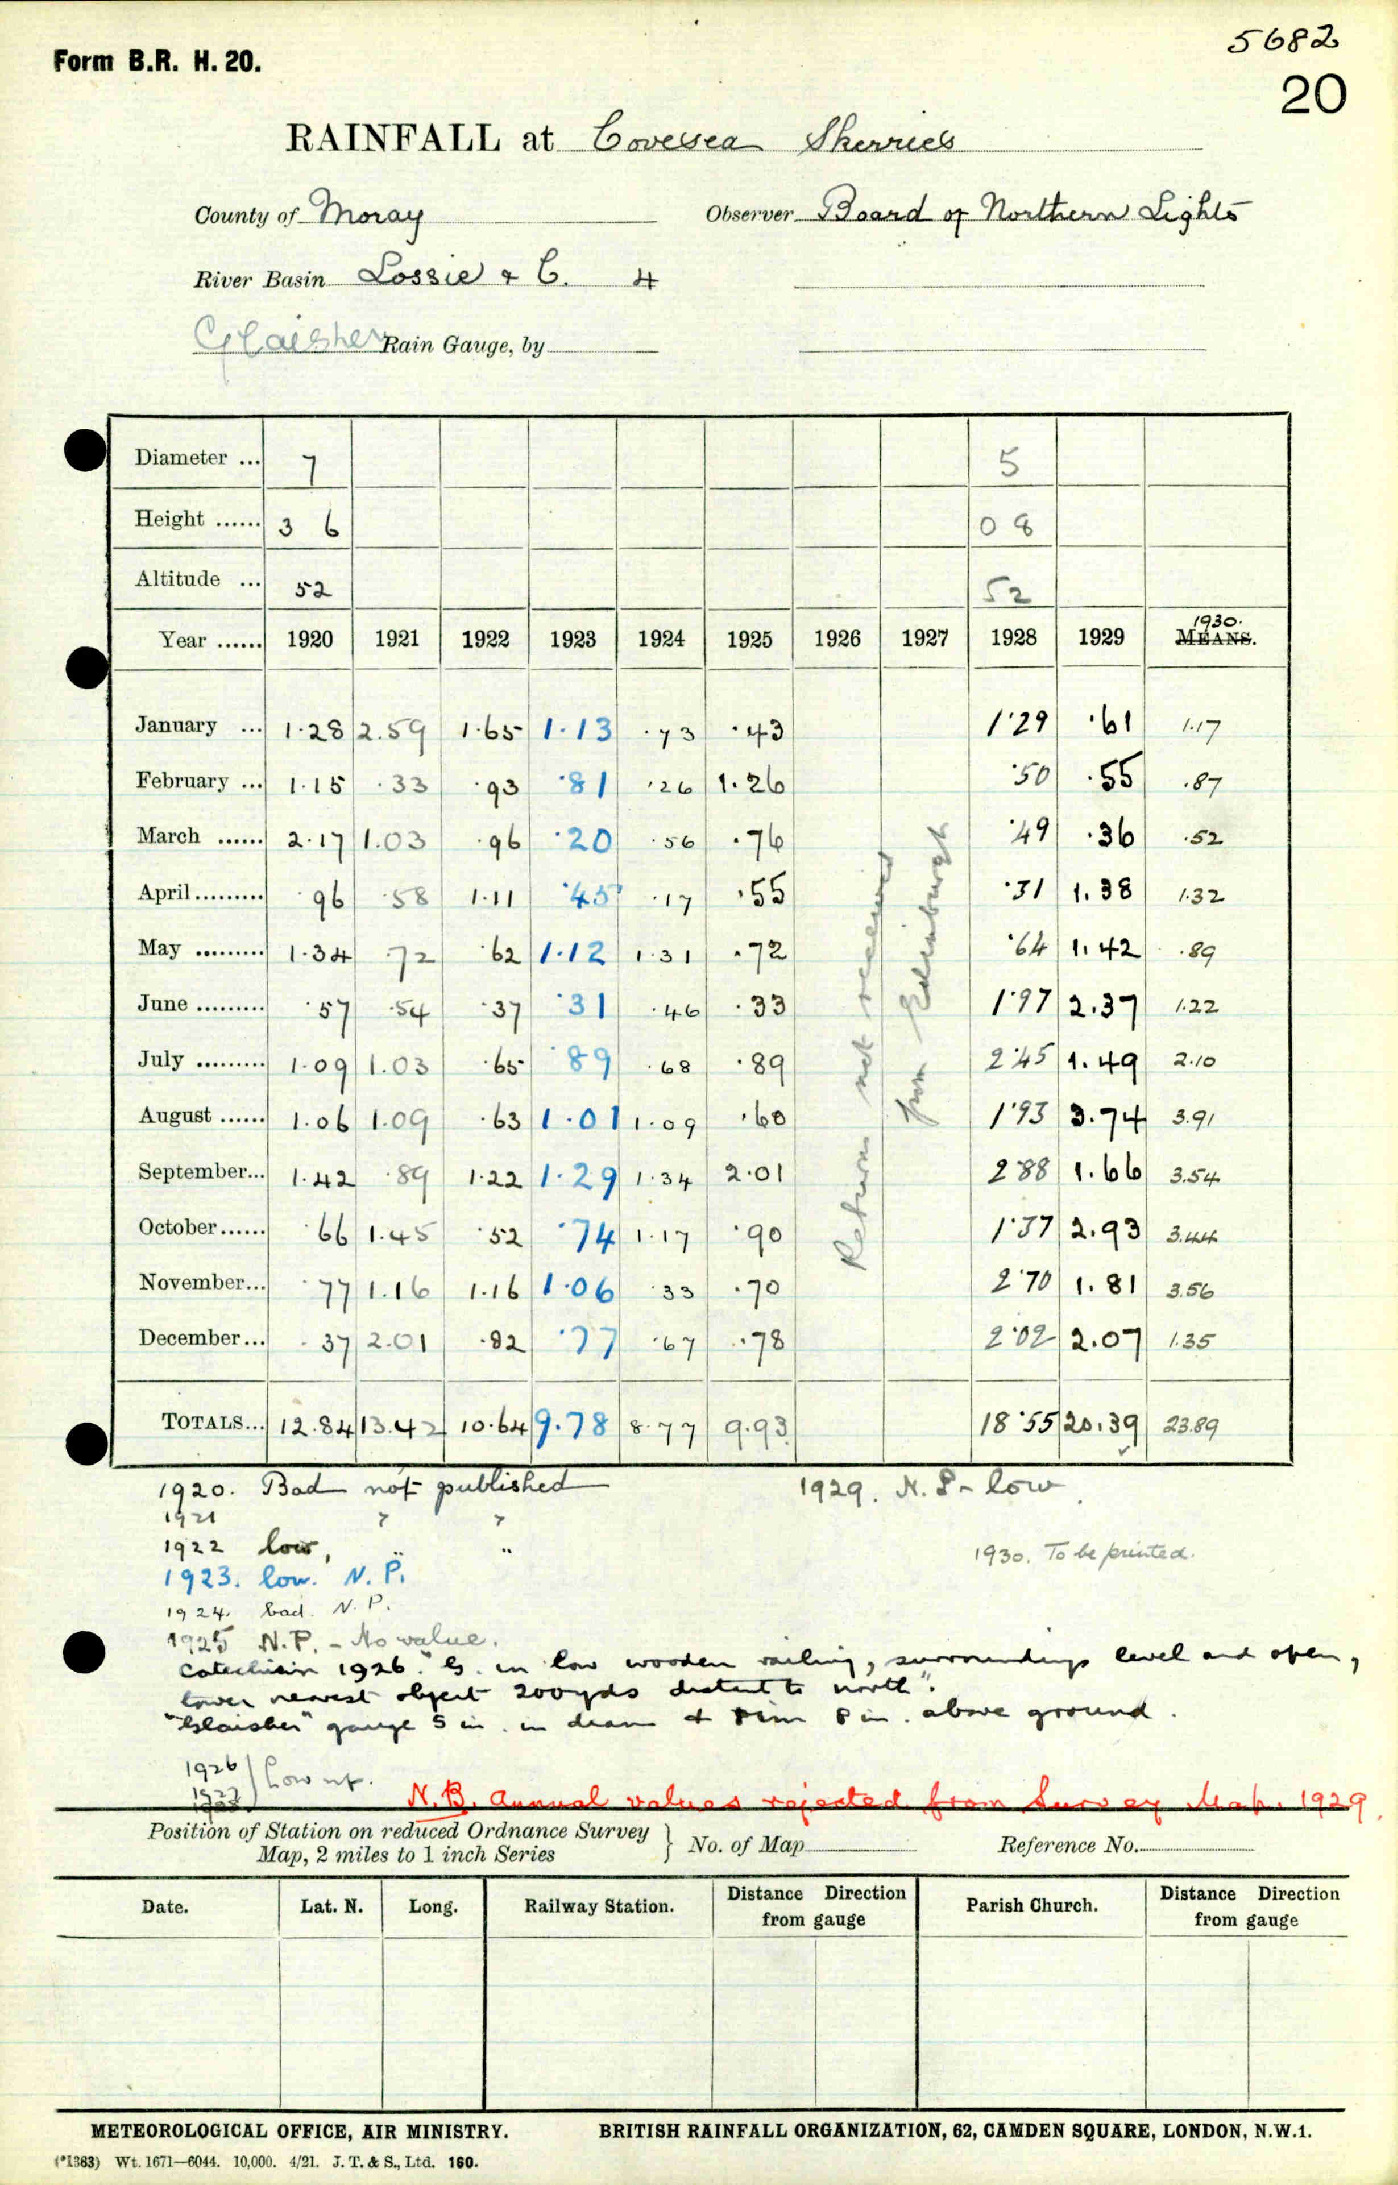 5682
Form B.R. H. 20.
20
RAINFALL at Covesea Skerries
County of Moray Observer Board of Northern Lights
River Basin Lossie & C. 4
Glaisher Rain Gauge, by
Diameter ... 7 5
Height ...... 3 6 0 8
Altitude ... 52 52
Year ...... 1920 1921 1922 1923 1924 1925 1926 1927 1928 1929 1930. MEANS.
January ... 1.28 2.59 1.65 1.13 .73 .43 1.29 .61 1.17
February ... 1.15 .33 .93 .81 .26 1.26 .50 .55 .87
March ...... 2.17 1.03 .96 .20 .56 .76 .49 .36 .52
April......... .96 .58 1.11 .45 .17 .55 .31 1.38 1.32
May ......... 1.34 .72 .62 1.12 1.31 .72 .64 1.42 .89
June ......... .57 .54 .37 .31 .46 .33 1.97 2.37 1.22
July ......... 1.09 1.03 .65 .89 .68 .89 2.45 1.49 2.10
August ...... 1.06 1.09 .63 1.01 1.09 .60 1.93 3.74 3.91
September... 1.42 .89 1.22 1.29 1.34 2.01 2.88 1.66 3.54
October...... .66 1.45 .52 .74 1.17 .90 1.37 2.93 3.44
November... .77 1.16 1.16 1.06 .33 .70 2.70 1.81 3.56
December... .37 2.01 .82 .77 .67 .78 2.02 2.07 1.35
TOTALS... 12.84 13.42 10.64 9.78 8.77 9.93 18.55 20.39 23.89
Returns not received
from Edinburgh
1920. Bad not published 1929. N.P - low.
1921 " "
1922 low, " "
1930. To be printed.
1923. low. N. P.
1924. bad. N. P.
1925 N.P. - No value.
Catechism 1926. "G. in low wooden railing, surroundings level and open,
tower nearest object 200 yds distant to north".
"Glaisher" gauge 5 in. in diam & rim 8 in. above ground.
1926
1927
1928
N.B. Annual values rejected from Survey Map. 1929.
Position of Station on reduced Ordnance Survey
Map, 2 miles to 1 inch Series } No. of Map Reference No.
Date. Lat. N. Long. Railway Station. Distance Direction from gauge Parish Church. Distance Direction from gauge
METEOROLOGICAL OFFICE, AIR MINISTRY. BRITISH RAINFALL ORGANIZATION, 62, CAMDEN SQUARE, LONDON, N.W.1.
(*1383) Wt. 1671—6044. 10,000. 4/21. J. T. & S., Ltd. 160.